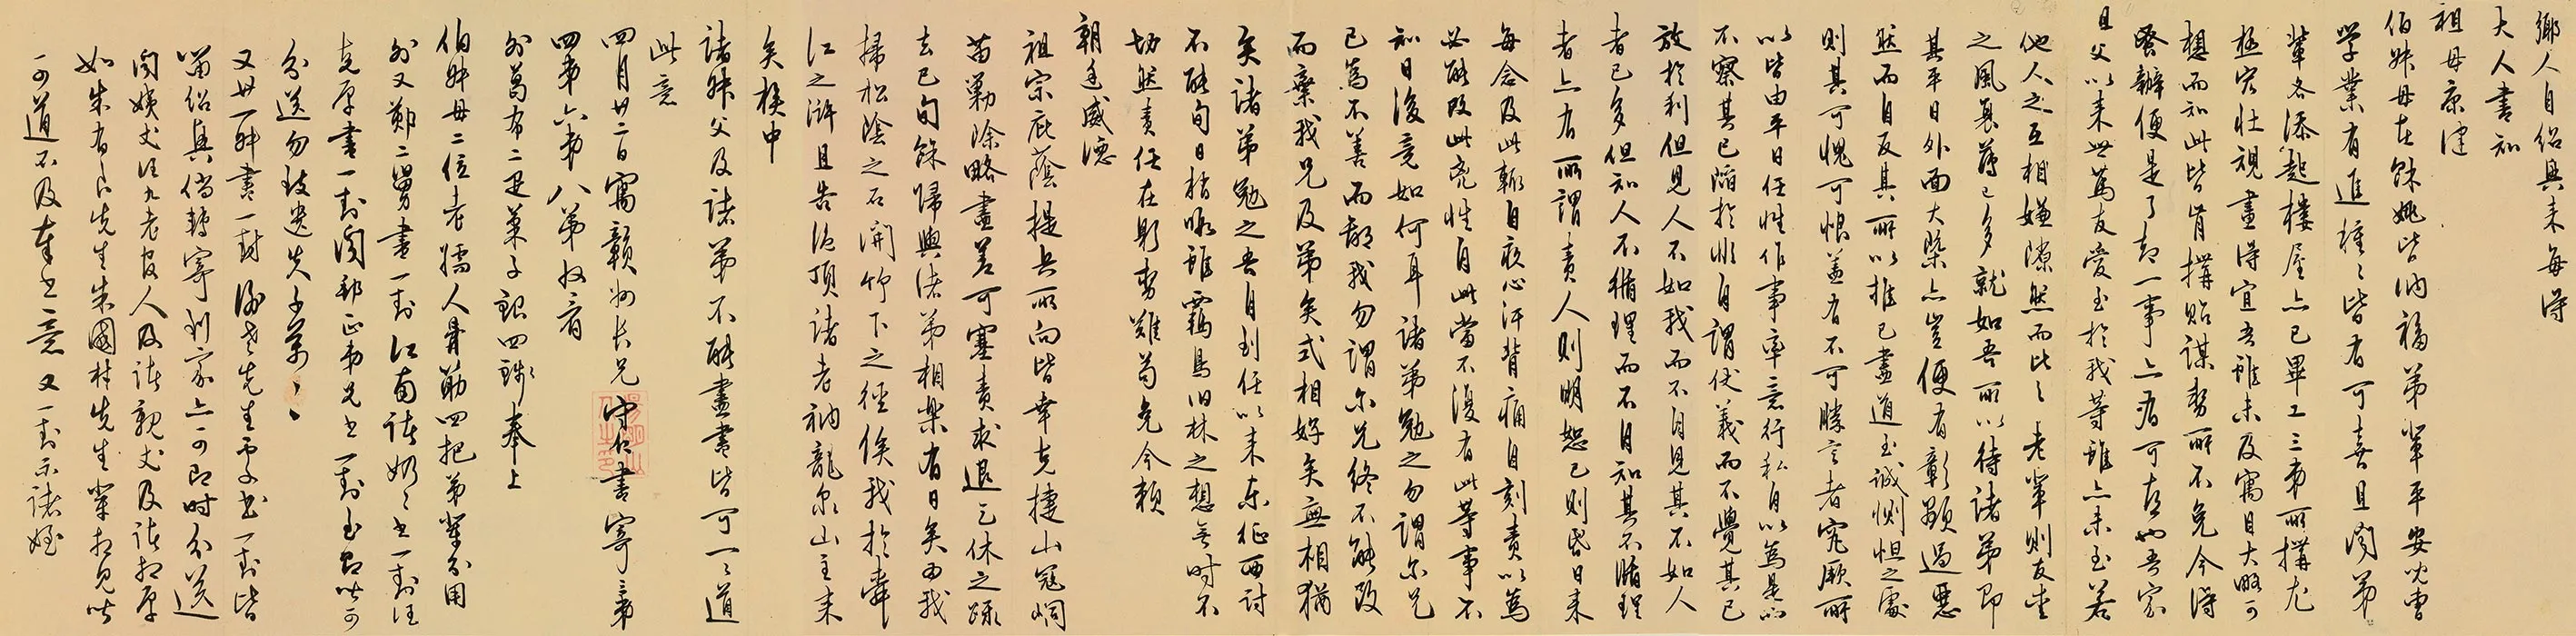 鄉人自紹興來每得
大人書知
祖母康健
伯叔母在餘姚皆納福弟輩平安兄曹
學業有進種種皆有可喜且聞弟
輩各添起樓屋亦已畢工三弟所搆尤
極宏壯規畫得宜吾雖未及寓目大略可
想而知此皆肯搆貽謀勢所不免今得
蚤辦便是了却一事亦有可喜也吾家
且父以來世篤友愛至於我等雖亦未至若
他人之互相嫌隙然而比之老輩則友愛
之風衰薄已多就如吾所以待諸弟即
其平日外面大槩亦豈便有彰顯過惡
然而自反其所以推己盡道至誠惻怛之處
則其可愧可恨蓋有不可勝言者究厥所
以皆由平日任性作事率意行私自以為是而
不察其已陷於非自謂仗義而不覺其已
放於利但見人不如我而不自見其不如人
者已多但知人不循理而不自知其不循理
者亦有所謂責人則明恕己則昏日來
每念及此輒自疚心汗背痛自刻責以為
必能改此尨性自此當不復有此等事不
知日後竟如何耳諸弟勉之勿謂尔兄
已為不善而鄙我勿謂尔兄終不能改
而棄我兄及弟矣式相好矣無相猶
矣諸弟勉之吾自到任以來東征西討
不能旬日稍暇雖羈鳥舊林之想無時不
切然責任在躬勢難苟免今賴
朝廷威德
祖宗庇蔭提兵所向皆幸克捷山寇峒
苗勦除略盡差可塞責求退乞休之疏
去已旬餘歸與諸弟相樂有日矣為我
掃松陰之石開竹下之徑俟我於舜
江之滸且告絕頂諸老衲龍泉山主來
矣族中
諸叔父及諸弟不能盡書皆可一一道
此意
四月廿二日寓贛州長兄守仁書寄三弟
四弟六弟八弟收看
外葛布二疋菓子銀四錢奉上
伯叔母二位老孺人骨筋四把弟輩分用
外又鄭二舅書一封江南諸奶奶書一封汪
克厚書一封聞邦正弟兄書一封至即皆可
分送勿致遺失千萬千萬
又廿一叔書一封謝老先生處書一封皆
留紹興倘轉寄到家亦可即時分送
聞姨丈汪九老官人及諸親丈及諸相厚
如朱有良先生朱國材先生輩相見皆
可道不及奉書意又一封示諸姪